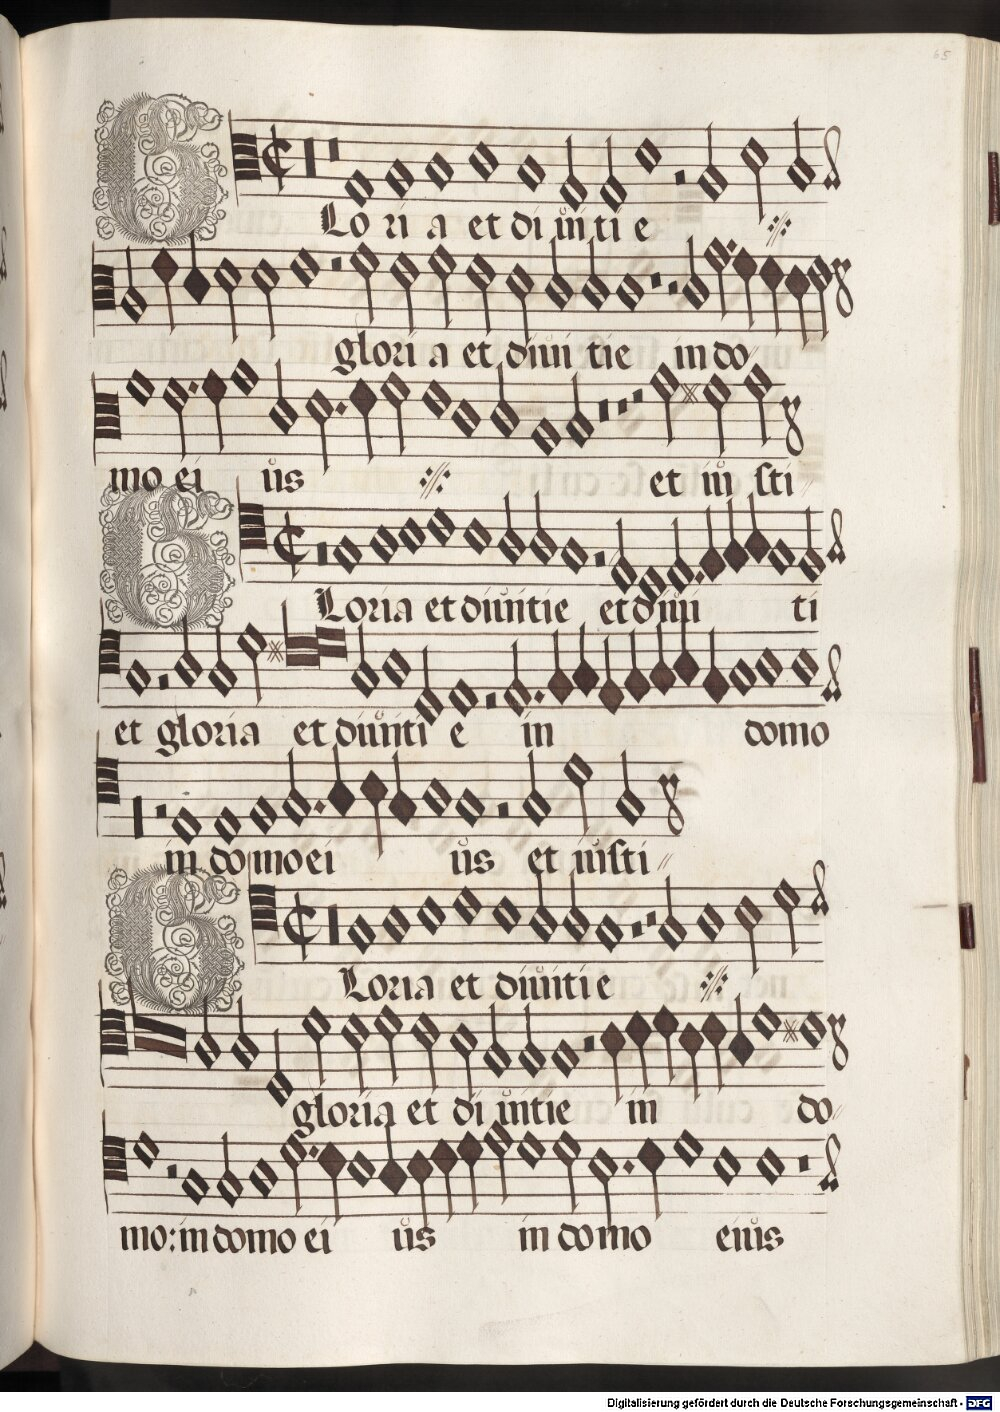 65
GLoria et diuitie
gloria et diuitie in do-
mo eius et iusti-
GLoria et diuitie et diuiti
et gloria et diuitie in domo
in domo eius et iusti-
GLoria et diuitie
gloria et diuitie in do-
mo: in domo eius in domo eius
Digitalisierung gefördert durch die Deutsche Forschungsgemeinschaft - DFG